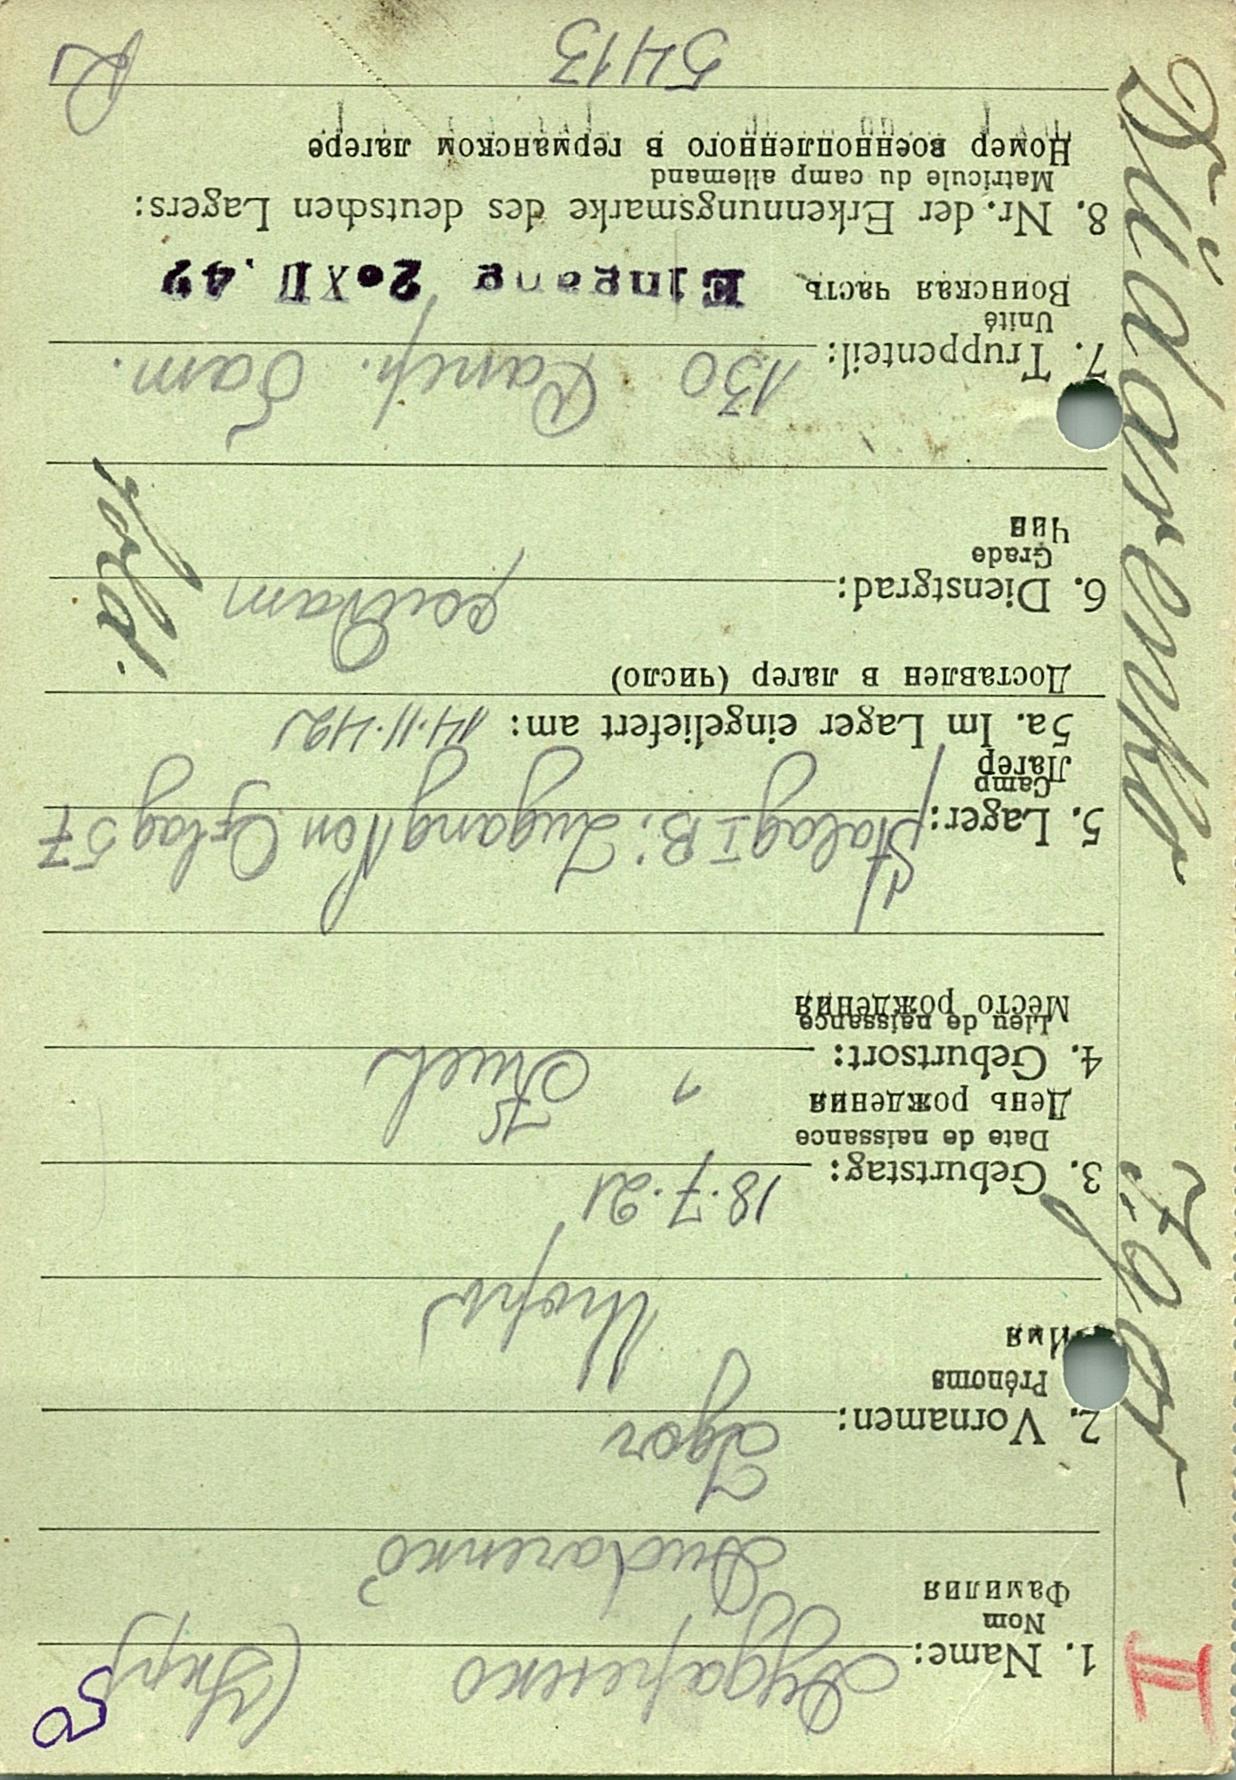 II
Düdarenko Igor
2
1. Name: Дударенко (Укр)
Nom
Фамилия
Dudarenko
2. Vornamen: Igor
Prénoms
Имя
Игорь
3. Geburtstag: 18.7.21
Date de naissance
День рождения
4. Geburtsort:
Lieu de naissance
Место рождения
5. Lager: Stalag I B. Zugang von Oflag 57
Camp
Лагерь
5a. Im Lager eingeliefert am: 14.11.42
Доставлен в лагер (число)
6. Dienstgrad: Sold.
Grade
Чин
7. Truppenteil: 130
Unité
Воинская часть Eingang 2. XII. 42
8. Nr. der Erkennungsmarke des deutschen Lagers:
Matricule du camp allemand
Номер военнопленного в германском лагере
5413
R